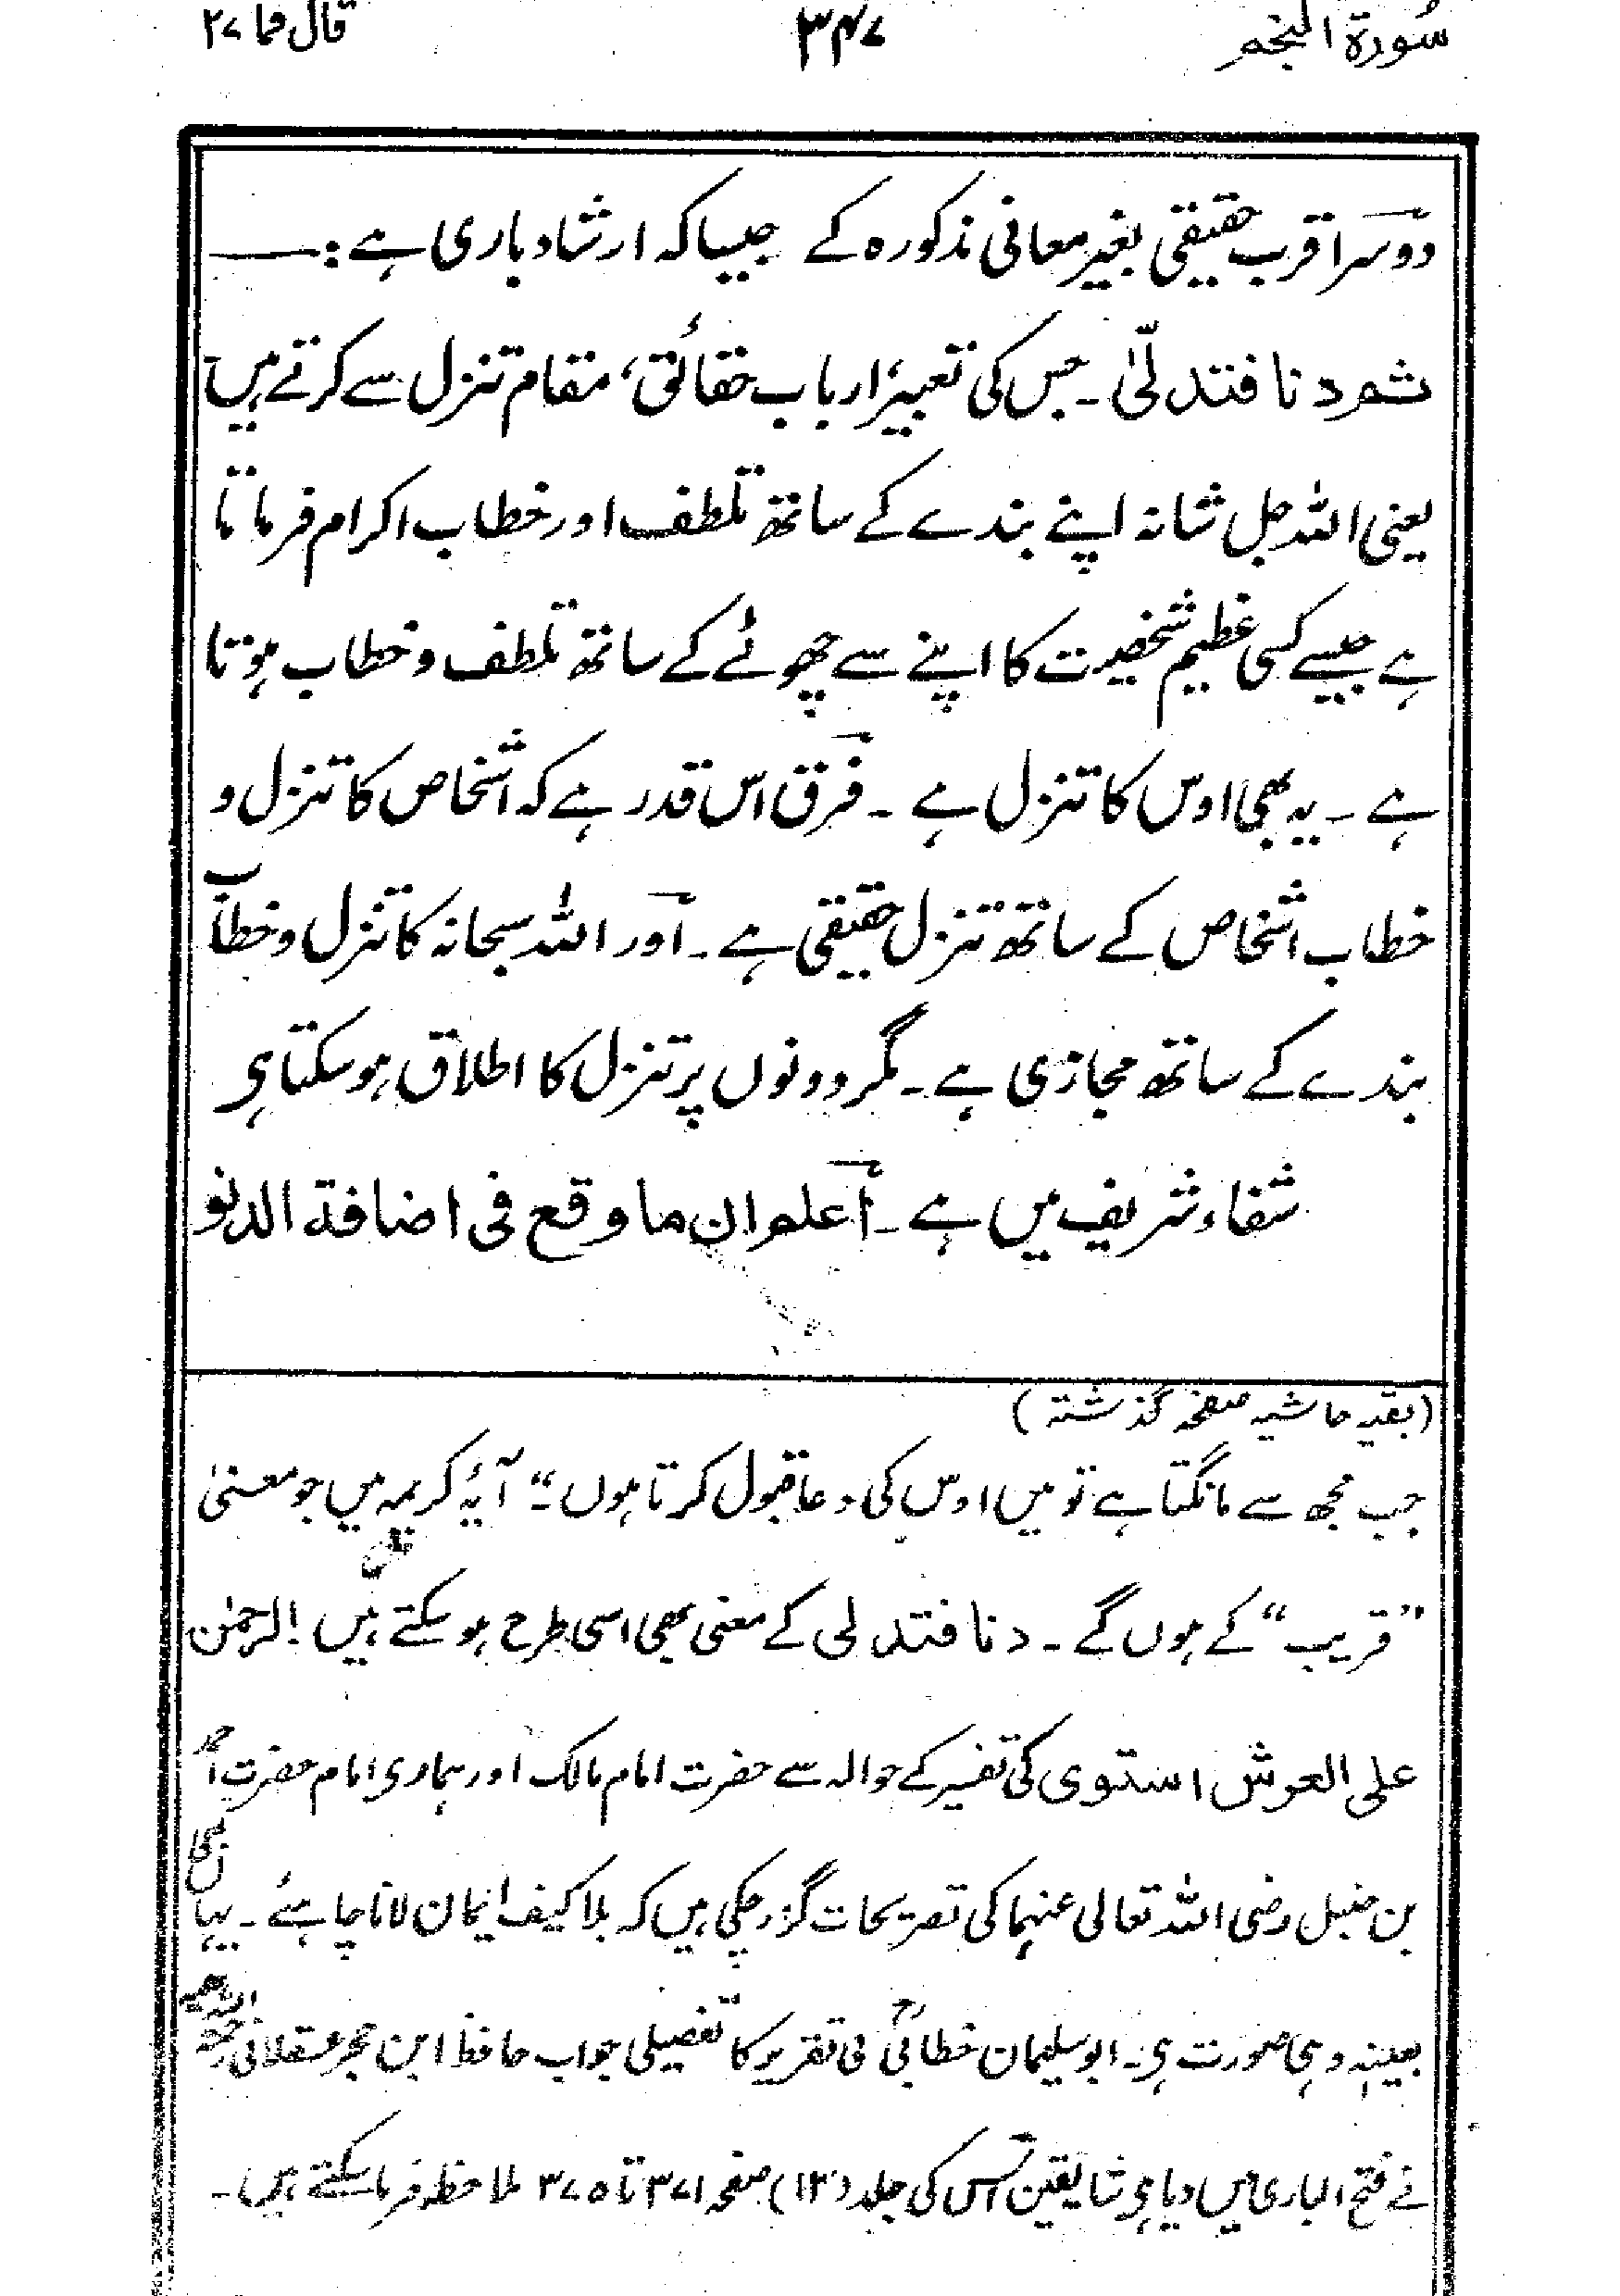 سُورة النجم ۳۴۷ قال فما ۲۷
دوسرا قرب حقیقی بغیر معانی مذکورہ کے جیسا کہ ارشاد باری ہے :ــــ
ثم دنا فتدلّیٰ ۔ جس کی تعبیر، ارباب حقائق، مقام تنزل سے کرتے ہیں
یعنی اللہ جل شانہ اپنے بندے کے ساتھ تلطف اور خطاب اکرام فرماتا
ہے جیسے کسی عظیم شخصیت کا اپنے سے چھوٹے کے ساتھ تلطف و خطاب ہوتا
ہے ۔ یہ بھی اوس کا تنزل ہے ۔ فرق اس قدر ہے کہ اشخاص کا تنزل و
خطاب اشخاص کے ساتھ تنزل حقیقی ہے ۔ اور اللہ سبحانہ کا تنزل و خطاب
بندے کے ساتھ مجازی ہے ۔ مگر دونوں پر تنزل کا اطلاق ہو سکتا ہی
شفاء شریف میں ہے ۔ اعلم ان ما وقع فی اضافة الدنو
(بقیہ حاشیہ صفحہ گذشتہ)
جب مجھ سے مانگتا ہے تو میں اوس کی دعا قبول کرتا ہوں ۔“ آیۂ کریمہ میں جو معنیٰ
”قریب“ کے ہوں گے ۔ دنا فتدلی کے معنی بھی اسی طرح ہو سکتے ہیں ! الرحمٰن
علی العرش استوی کی تفسیر کے حوالہ سے حضرت امام مالک اور ہماری امام حضرت احمد
بن حنبل رضی اللہ تعالی عنہما کی تصریحات گزر چکی ہیں کہ بلا کیف ایمان لانا چاہئے ۔ یہاں بھی
بعینہ وہی صورت ہی ۔ ابو سلیمان خطابیؒ کی تقریر کا تفصیلی جواب حافظ ابن حجر عسقلانی رحمۃ اللہ علیہ
نے فتح الباری میں دیا ہی شایقین اُس کی جلد (۱۳) صفحہ ۳۷۱ تا ۳۷۵ ملاحظہ فرما سکتے ہیں ۔